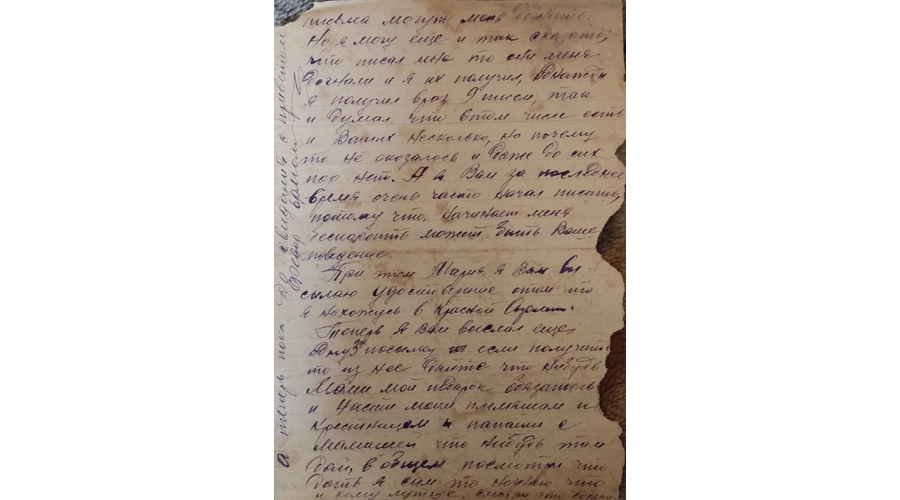 письма могут меня догнать.
Но я могу еще и так сказать,
что писал мне то они меня
догнали и я их получил, однажды
я получил враз 9 писем, так
и думал что втом числе есть
и Ваших несколько, но почему
то не оказалось и даже до сих
пор нет. А я Вам за последнее
время очень часто начал писать,
потому что. Начинает меня
беспокоить может быть Ваше
поведение.
При этом Мария я Вам вы
сылаю удостоверение отом что
я нохожусь в Красной
Теперь я Вам выслал еще,
посылку если получите
то из нее дайте что нибудь
Мами мой подарок
и Насти моим племяшам и
Крестницам и папаши с
мамашей что нибудь
дай, в общем посмотри что
дать я сам то незнаю что
и кому
а теперь пока. До свидания с приветом